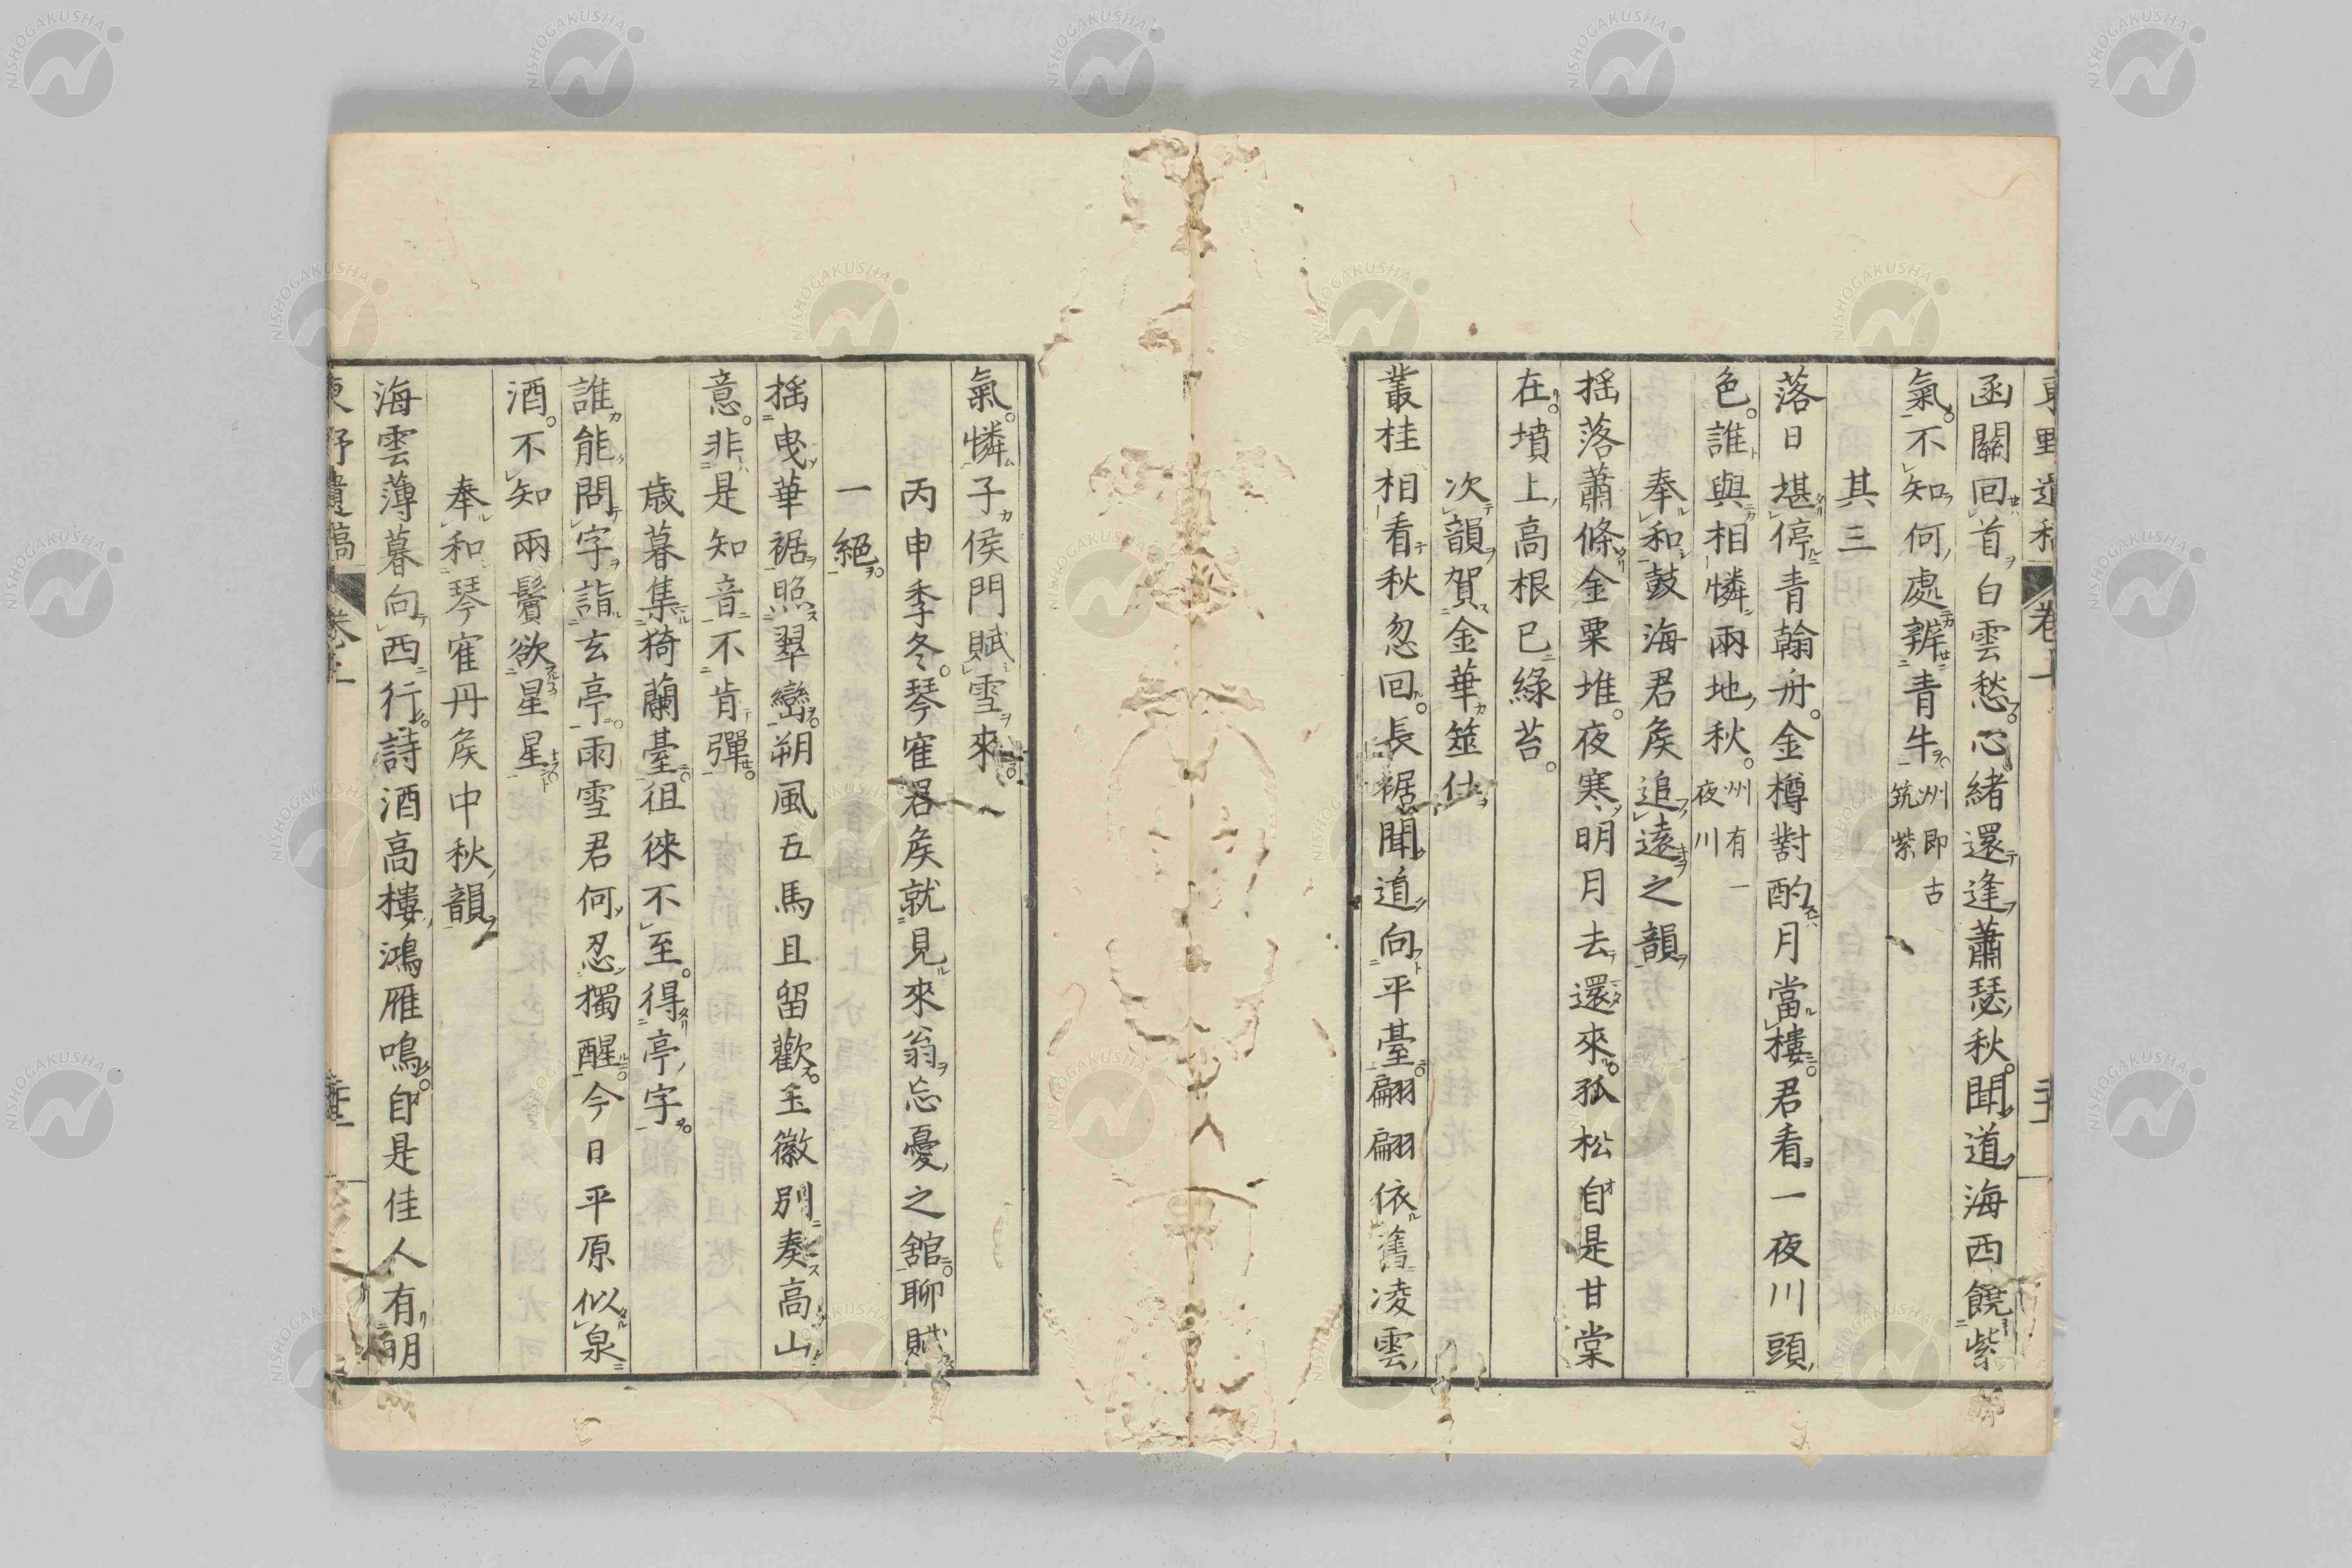 函關回首白雲愁。心緒還逢蕭瑟秋。聞道海西饒紫
氣。不知何處辨青牛。筑州即古紫
其三
落日堪停青翰舟。金樽對酌月當樓。君看一夜川頭
色。誰與相憐兩地秋。州有一夜川
奉和鼓海君矦追遠之韻
搖落蕭條金粟堆。夜寒明月去還來。孤松自是甘棠
在。墳上高根已綠苔。
次韻賀金華筮仕
叢桂相看秋忽回。長裾聞道向平臺。翩翩依舊凌雲
氣。憐子侯門賦雪來
丙申季冬。琴寉君矦就見來翁忘憂之舘。聊賦
一絕。
搖曳華裾照翠巒。朔風五馬且留歡。玉徽別奏高山
意。非是知音不肯彈。
歲暮集猗蘭臺。徂徠不至。得亭字。
誰能問字詣玄亭。雨雪君何忍獨醒。今日平原似泉
酒。不知兩鬢欲星星。
奉和琴寉丹矦中秋韻
海雲薄暮向西行。詩酒高樓鴻雁鳴。自是佳人有明
東野遺稿 卷上